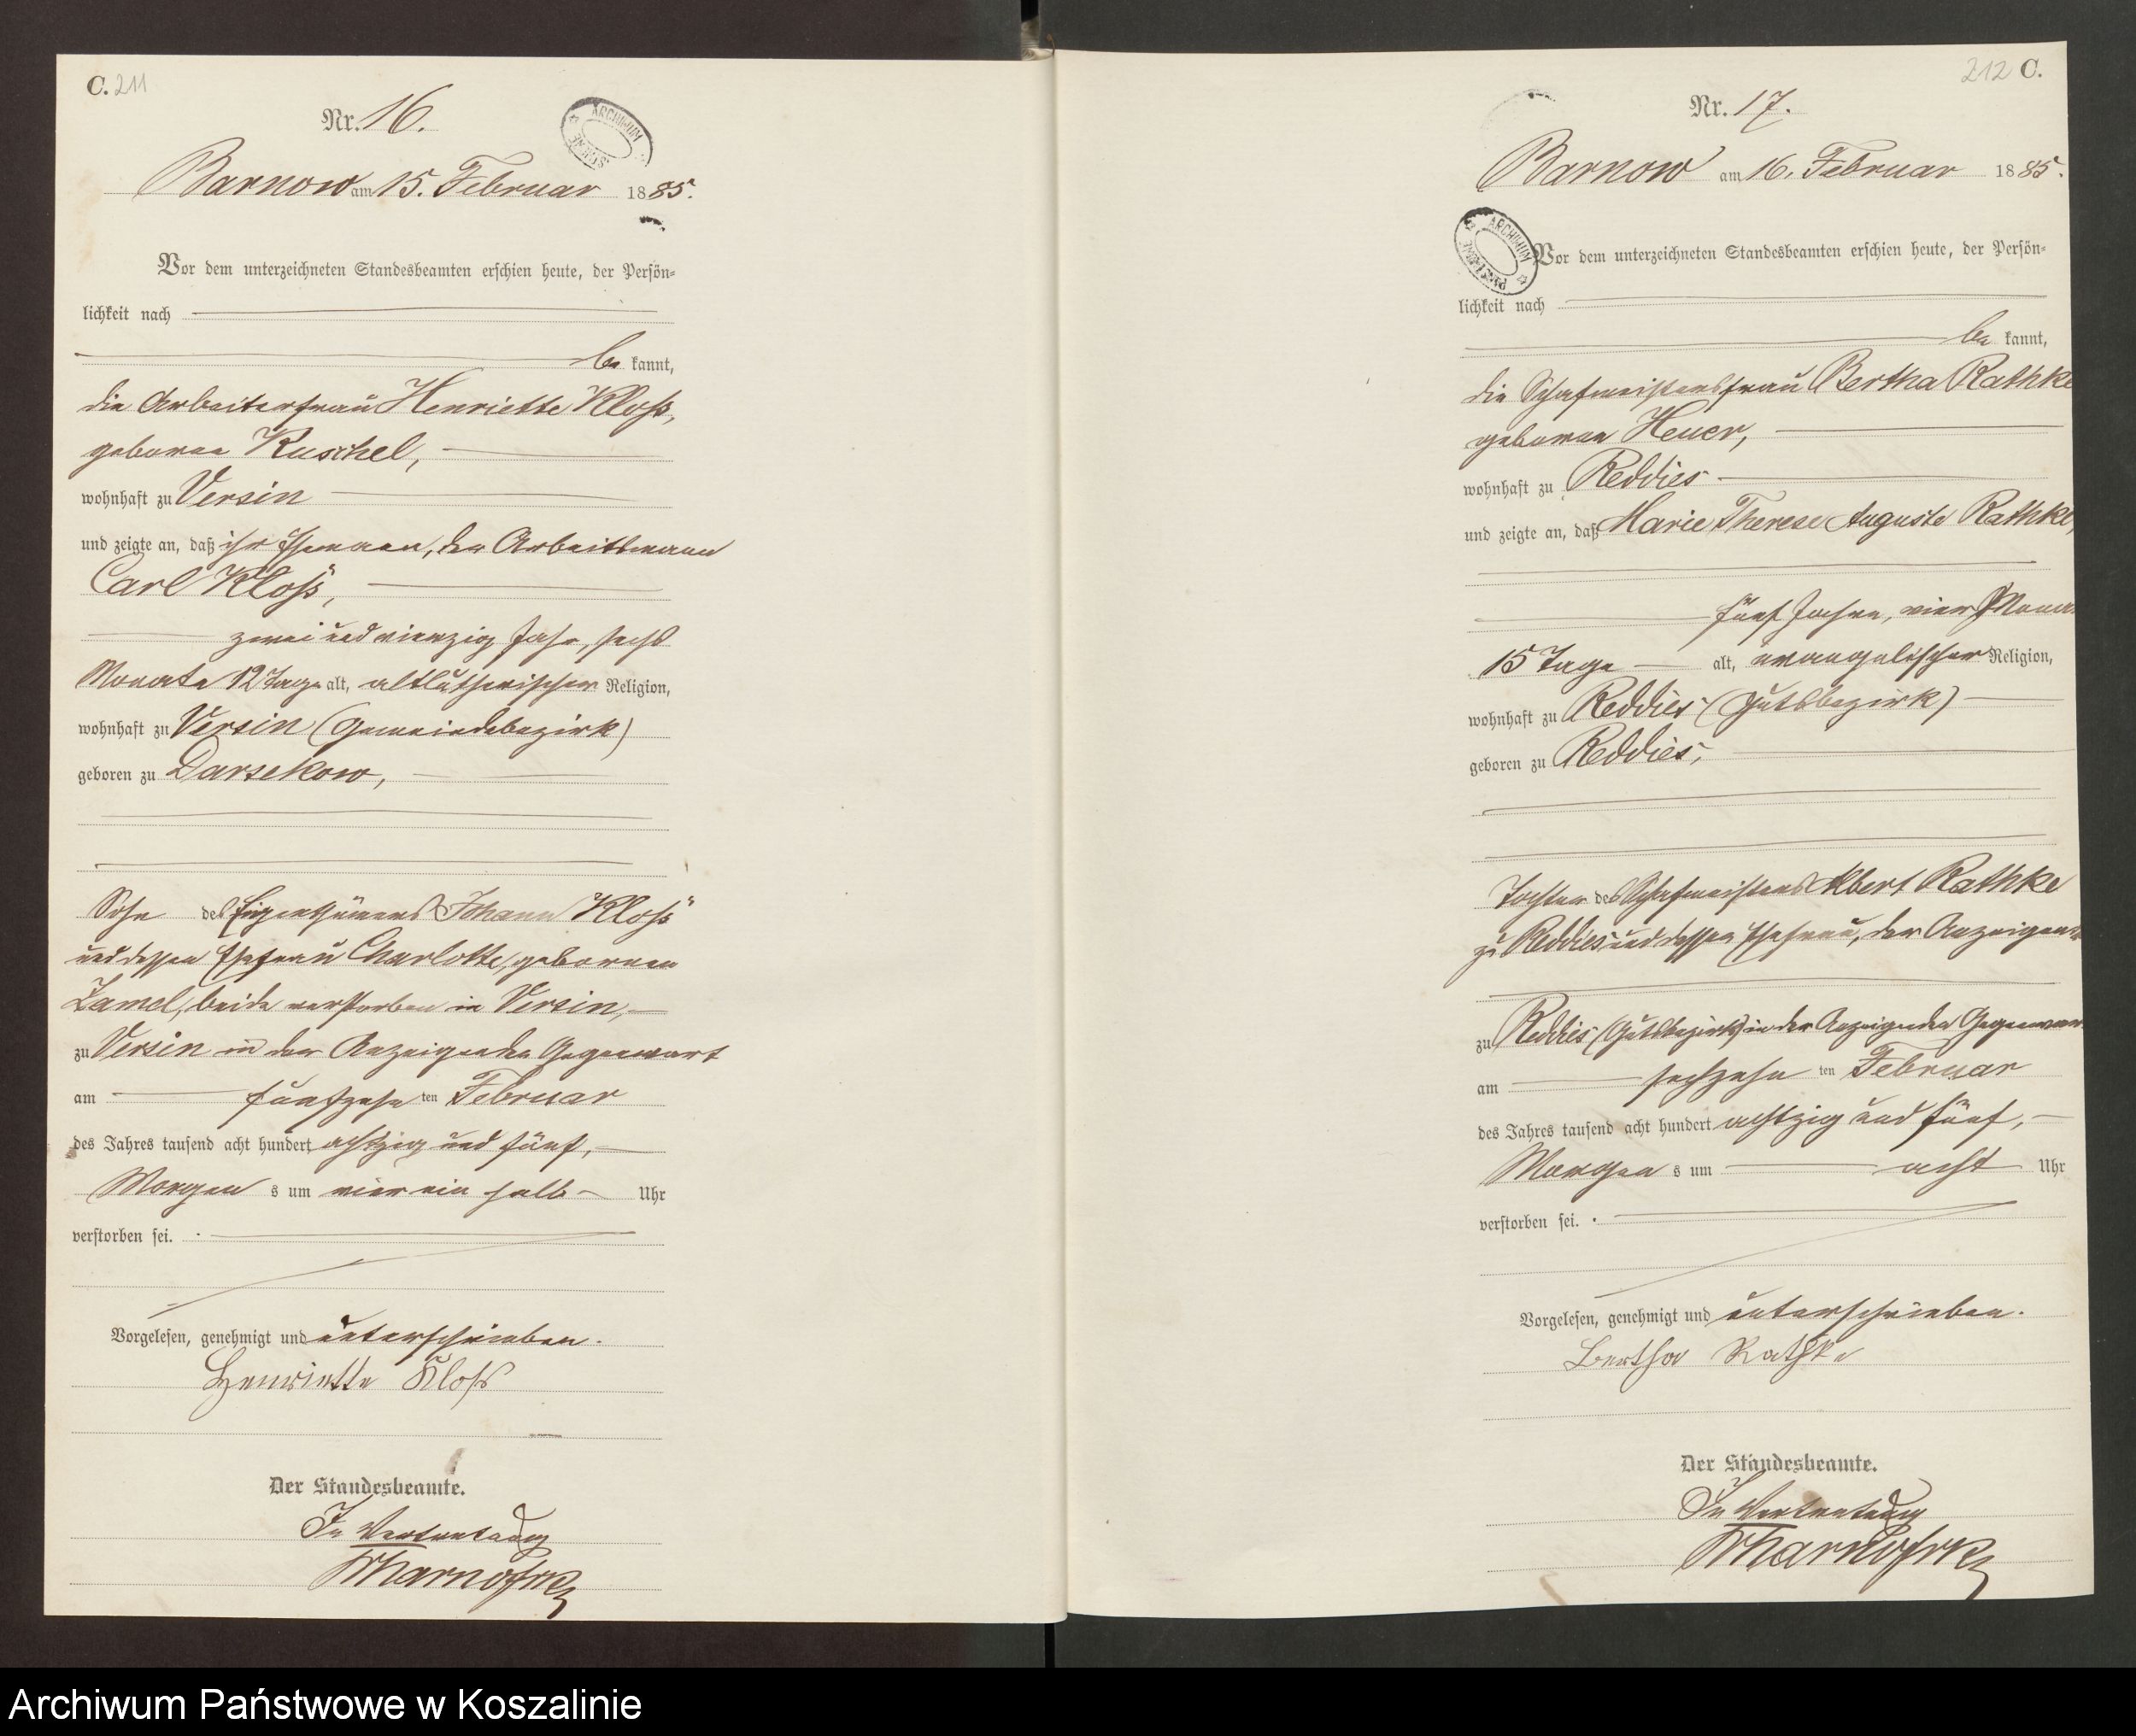 C. 211
Nr. 16.
ARCHIWUM
Barnow am 15. Februar 1885.
Vor dem unterzeichneten Standesbeamten erschien heute, der Persön-
lichkeit nach
be kannt,
die Arbeiterfrau Henriette Kloß,
geborene Kuschel,
wohnhaft zu Versin
und zeigte an, daß ihr Ehemann, der Arbeitsmann
Carl Kloß,
zwei und vierzig Jahr, sechs
Monate 12 Tage alt, altlutherischer Religion,
wohnhaft zu Versin (Gemeindebezirk)
geboren zu Darsekow,
Sohn des Eigenthümers Johann Kloß
und dessen Ehefrau Charlotte, geborenen
Zamel, beide verstorben in Versin,
zu Versin in der Anzeigenden Gegenwart
am fünfzehn ten Februar
des Jahres tausend acht hundert achtzig und fünf,
Morgen s um vier ein halb Uhr
verstorben sei.
Vorgelesen, genehmigt und unterschrieben.
Henriette Kloß
Der Standesbeamte.
In Vertretung
212 C.
Nr. 17.
Barnow am 16. Februar 1885.
ARCHIWUM
Vor dem unterzeichneten Standesbeamten erschien heute, der Persön-
lichkeit nach
be kannt,
die Schafmeistersfrau Bertha Rathke
geborene Heuer,
wohnhaft zu Reddies
und zeigte an, daß Marie Therese Auguste Rathke,
fünf Jahre, vier Mona
15 Tage alt, evangelischer Religion,
wohnhaft zu Reddies (Gutsbezirk)
geboren zu Reddies,
Tochter des Schafmeisters Albert Rathke
zu Reddies und dessen Ehefrau, der Anzeigen
zu Reddies (Gutsbezirk) in der Anzeigenden Gegenwar
am sechzehn ten Februar
des Jahres tausend acht hundert achtzig und fünf,
Morgen s um acht Uhr
verstorben sei.
Vorgelesen, genehmigt und unterschrieben.
Bertha Rathke
Der Standesbeamte.
In Vertretung
Archiwum Państwowe w Koszalinie